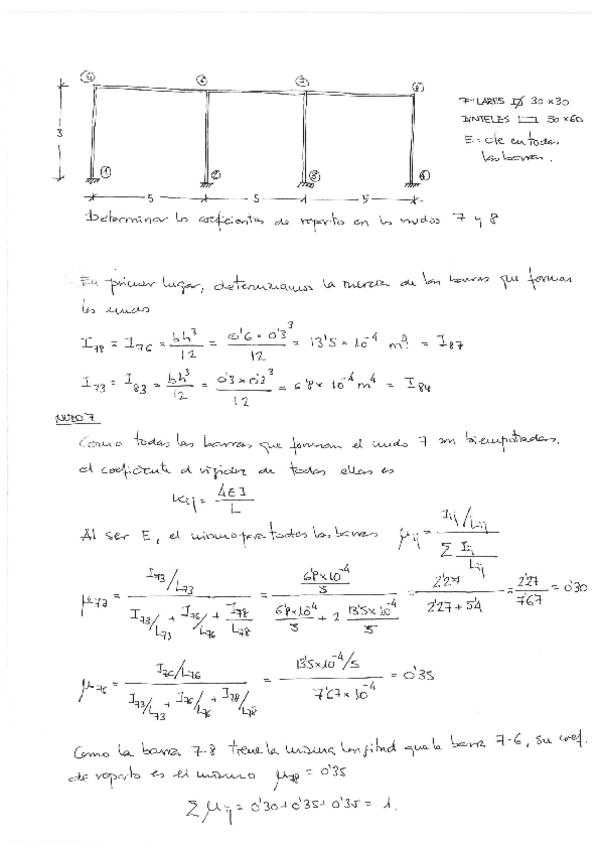 ⑤ ⑥ ⑦ ⑧
PILARES 30×30
DINTELES 30×60
E = cte en todas
las barras.
3
① ② ③ ④
5 5 5
Determinar los coeficientes de reparto en los nudos 7 y 8
En primer lugar, determinamos la inercia de las barras que forman
los nudos
I78 = I76 = bh³/12 = 0'6 × 0'3³/12 = 13'5 × 10⁻⁴ m⁴ = I87
I73 = I83 = bh³/12 = 0'3 × 0'3³/12 = 6'8 × 10⁻⁴ m⁴ = I84
NUDO 7
Como todas las barras que forman el nudo 7 son biempotradas.
el coeficiente d rigidez de todas ellas es
Kij = 4EI/L
Al ser E, el mismo para todas las barras μij = Iij/Lij / Σ Iij/Lij
μ73 = I73/L73 / I73/L73 + I76/L76 + I78/L78 = 6'8×10⁻⁴/3 / 6'8×10⁻⁴/3 + 2 13'5×10⁻⁴/5 = 2'27 / 2'27 + 5'4 = 2'27/7'67 = 0'30
μ76 = I76/L76 / I73/L73 + I76/L76 + I78/L78 = 13'5×10⁻⁴/5 / 7'67×10⁻⁴ = 0'35
Como la barra 7-8 tiene la misma longitud que la barra 7-6, su coef.
de reparto es el mismo μ78 = 0'35
Σμij = 0'30 + 0'35 + 0'35 = 1.